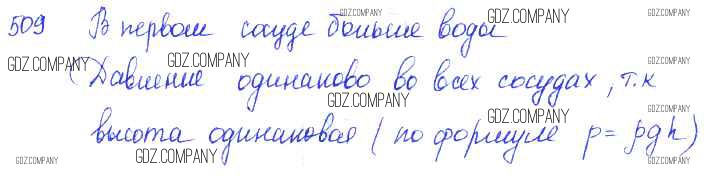 509 В первом сосуде больше воды
GDZ.COMPANY
GDZ.COMPANY
GDZ.COMPANY
GDZ.COMPANY
GDZ.COMPANY
Давление одинаково во всех сосудах, т.к
GDZ.COMPANY
GDZ.COMPANY
высота одинаковая (по формуле p = ρgh)
GDZ.COMPANY
GDZ.COMPANY
GDZ.COMPANY
GDZ.COMPANY